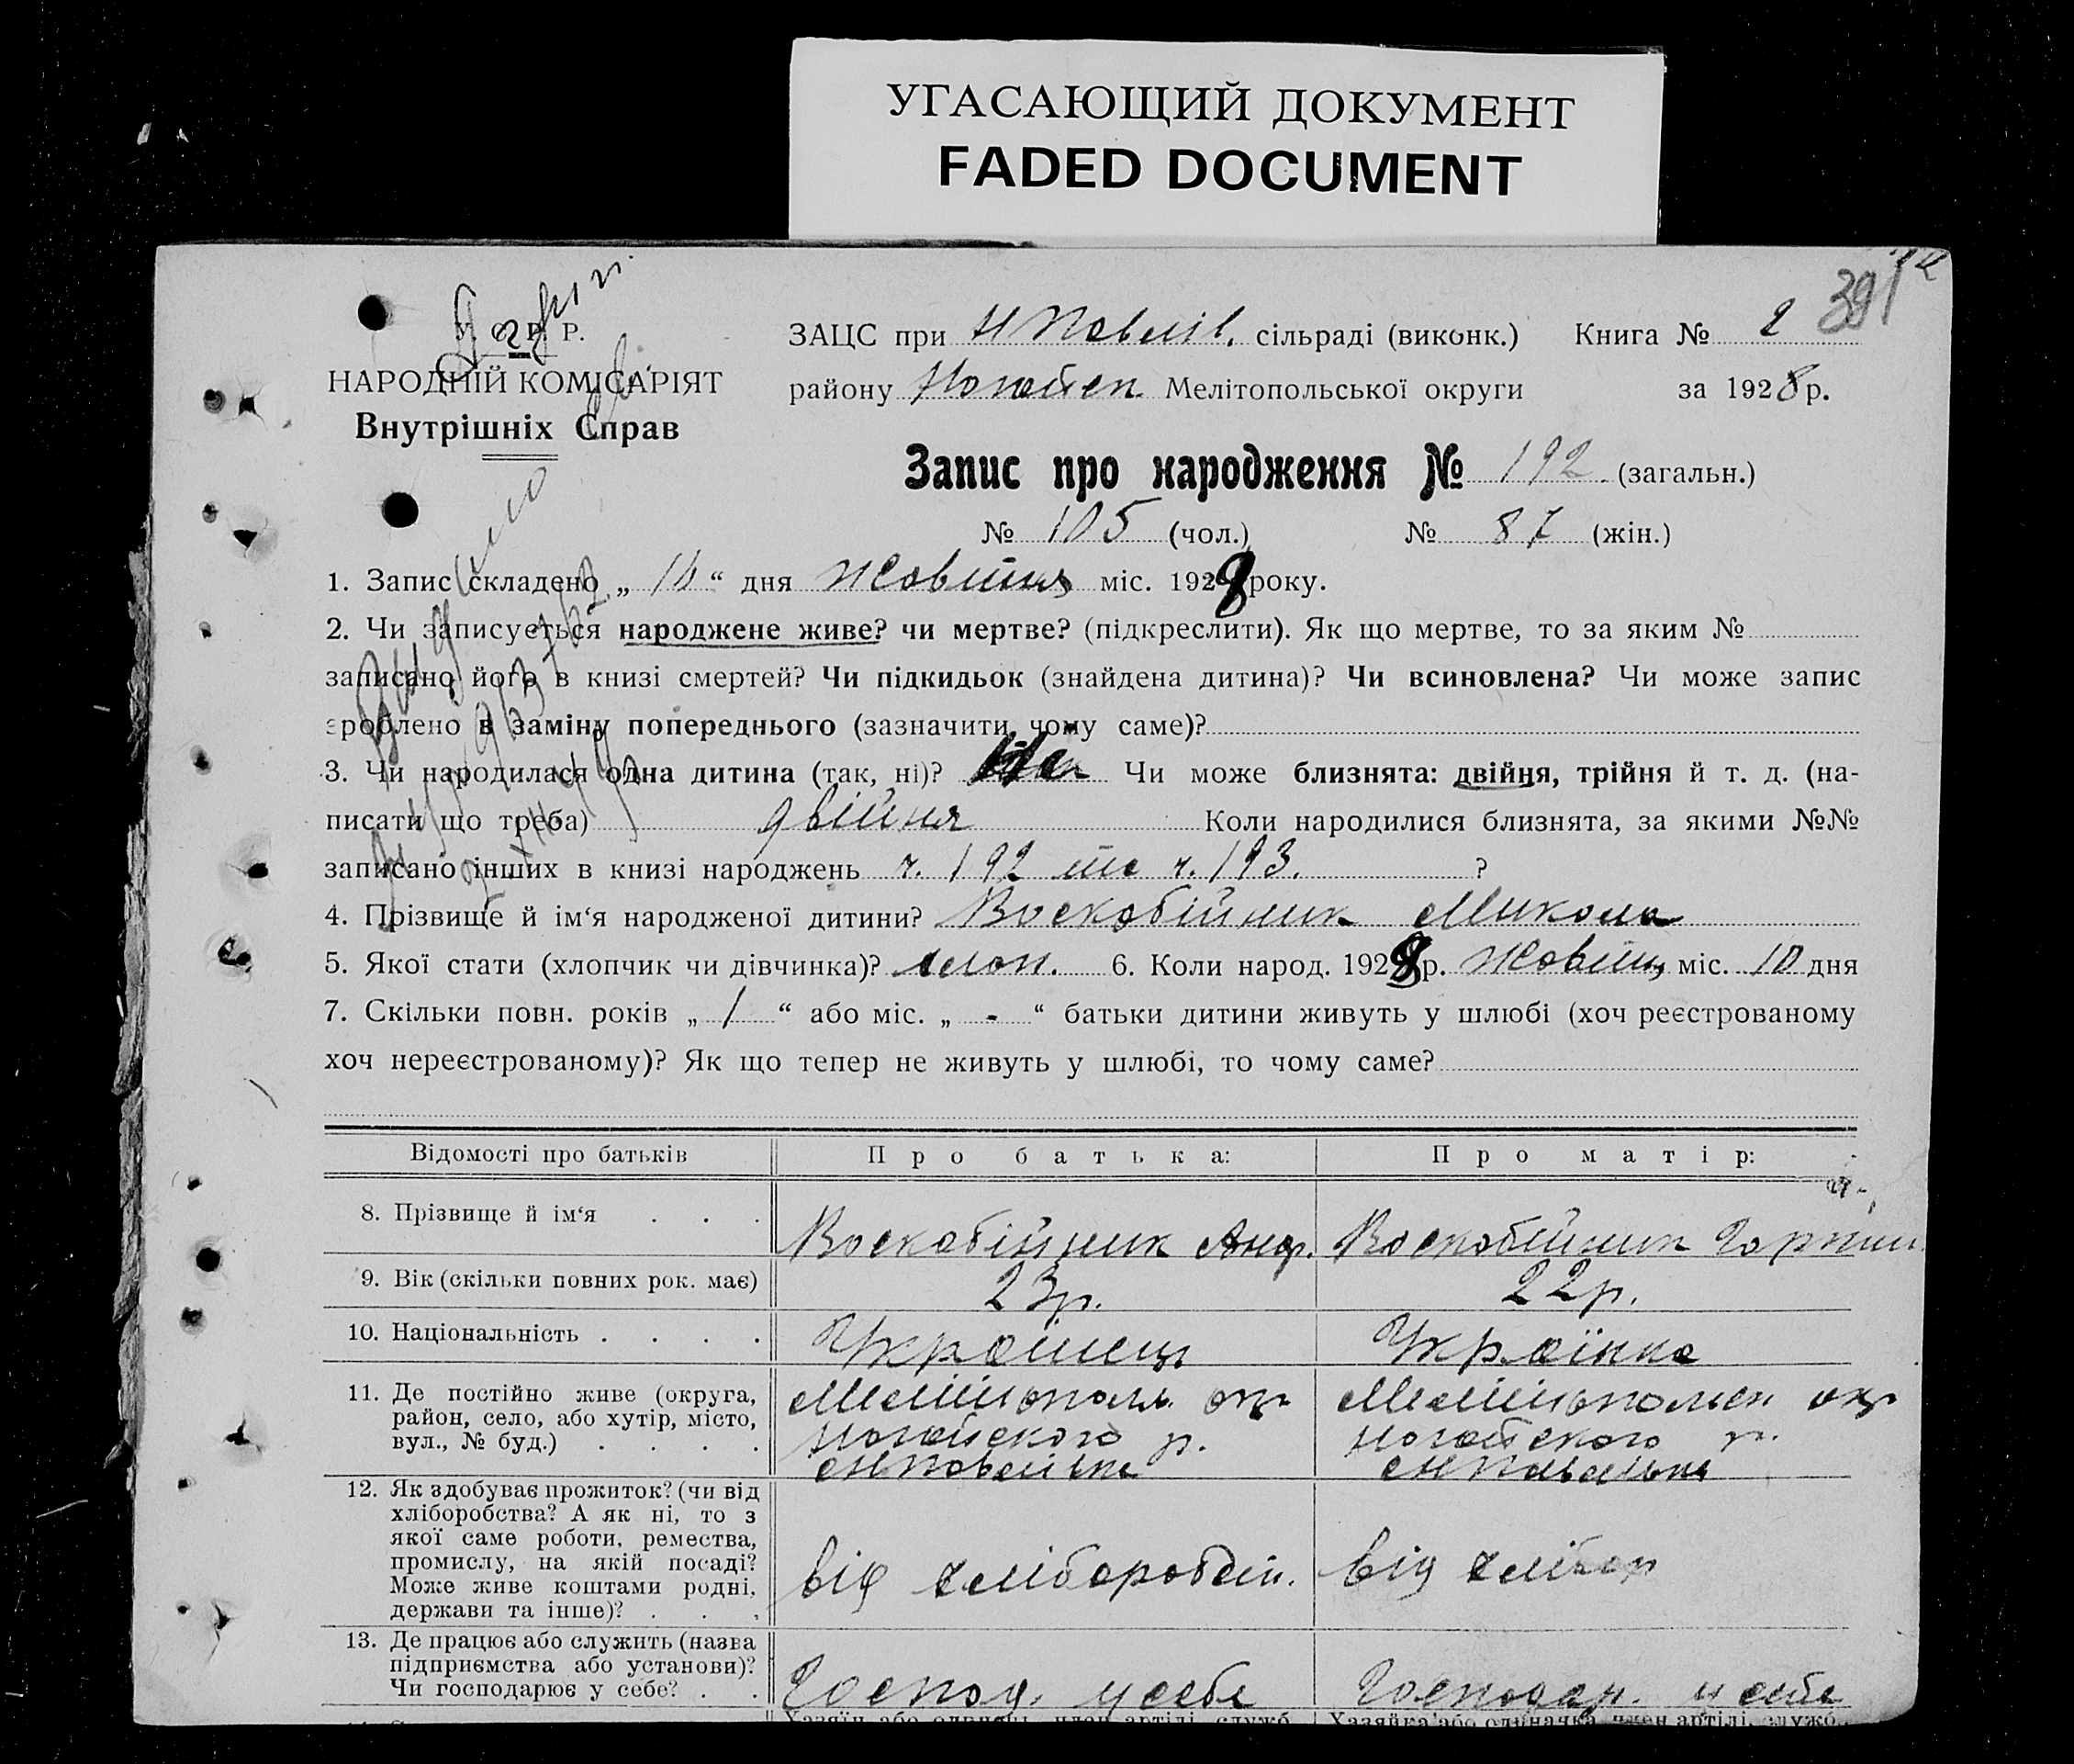 УГАСАЮЩИЙ ДОКУМЕНТ
FADED DOCUMENT
391
У. С. Р. Р.
НАРОДНІЙ КОМІСАРІЯТ
Внутрішніх Справ
ЗАЦС при Н Павлів. сільраді (виконк.) Книга № 2
району Ногайськ Мелітопольської округи за 1928 р.
Запис про народження № 192 (загальн.)
№ 105 (чол.) № 87 (жін.)
1. Запис складено „ “ дня Жовтня міс. 1928 року.
2. Чи записується народжене живе? чи мертве? (підкреслити). Як що мертве, то за яким №
записано його в книзі смертей? Чи підкидьок (знайдена дитина)? Чи всиновлена? Чи може запис
зроблено в заміну попереднього (зазначити чому саме)?
3. Чи народилася одна дитина (так, ні)? Чи може близнята: двійня, трійня й т. д. (на-
писати що треба) двійня Коли народилися близнята, за якими №№
записано інших в книзі народжень ч. 192 та ч. 193. ?
4. Прізвище й ім‘я народженої дитини? Воскобійник Микола
5. Якої статі (хлопчик чи дівчинка)? хлоп. 6. Коли народ. 1928 р. Жовтня міс. 10 дня
7. Скільки повн. років „ 1 “ або міс. „ - “ батьки дитини живуть у шлюбі (хоч реєстрованому
хоч нереєстрованому)? Як що тепер не живуть у шлюбі, то чому саме?
Відомості про батьків Про батька: Про матір:
8. Прізвище й ім‘я . . . Воскобійник Анд. Воскобійник
9. Вік (скільки повних рок. має) 23р. 22р.
10. Національність . . . . Українець Українка
11. Де постійно живе (округа, Мелітополь. окр Мелітопольськ окр
район, село, або хутір, місто, Ногайського р. Ногайського р.
вул., № буд.) . . . . с Н Павлівка с Н Павлівка
12. Як здобуває прожиток? (чи від
хліборобства? А як ні, то з
якої саме роботи, ремества,
промислу, на якій посаді? від хліборобст. від хлібор
Може живе коштами родні,
держави та інше)? . . .
13. Де працює або служить (назва
підприємства або установи)?
Чи господарює у себе? . . Господ. у себе Господар. у себе
Хазяїн або одинак, член артілі, служб. Хазяйка або одиначка, член артілі, служб.